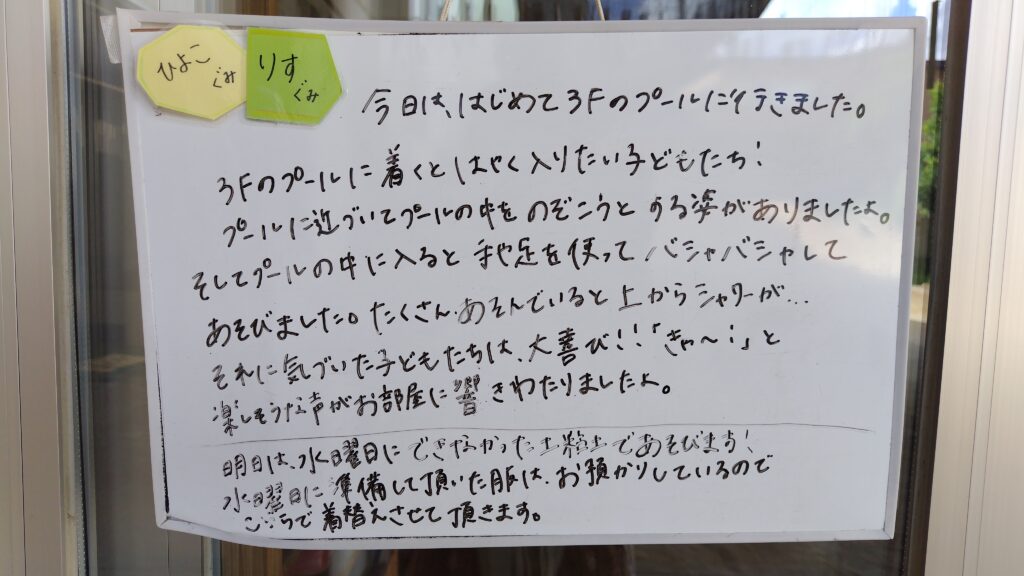 ひよこ
ぐみ
りす
ぐみ
今日は、はじめて3Fのプールに行きました。
3Fのプールに着くとはやく入りたい子どもたち!
プールに近づいてプールの中をのぞこうとする姿がありましたよ。
そしてプールの中に入ると手や足を使ってバシャバシャして
あそびました。たくさんあそんでいると上からシャワーが…
それに気づいた子どもたちは、大喜び!!「きゃ〜!」と
楽しそうな声がお部屋に響きわたりましたよ。
明日は、水曜日にできなかった土粘土であそびます!
水曜日に準備して頂いた服は、お預かりしているので
こちらで着替えさせて頂きます。